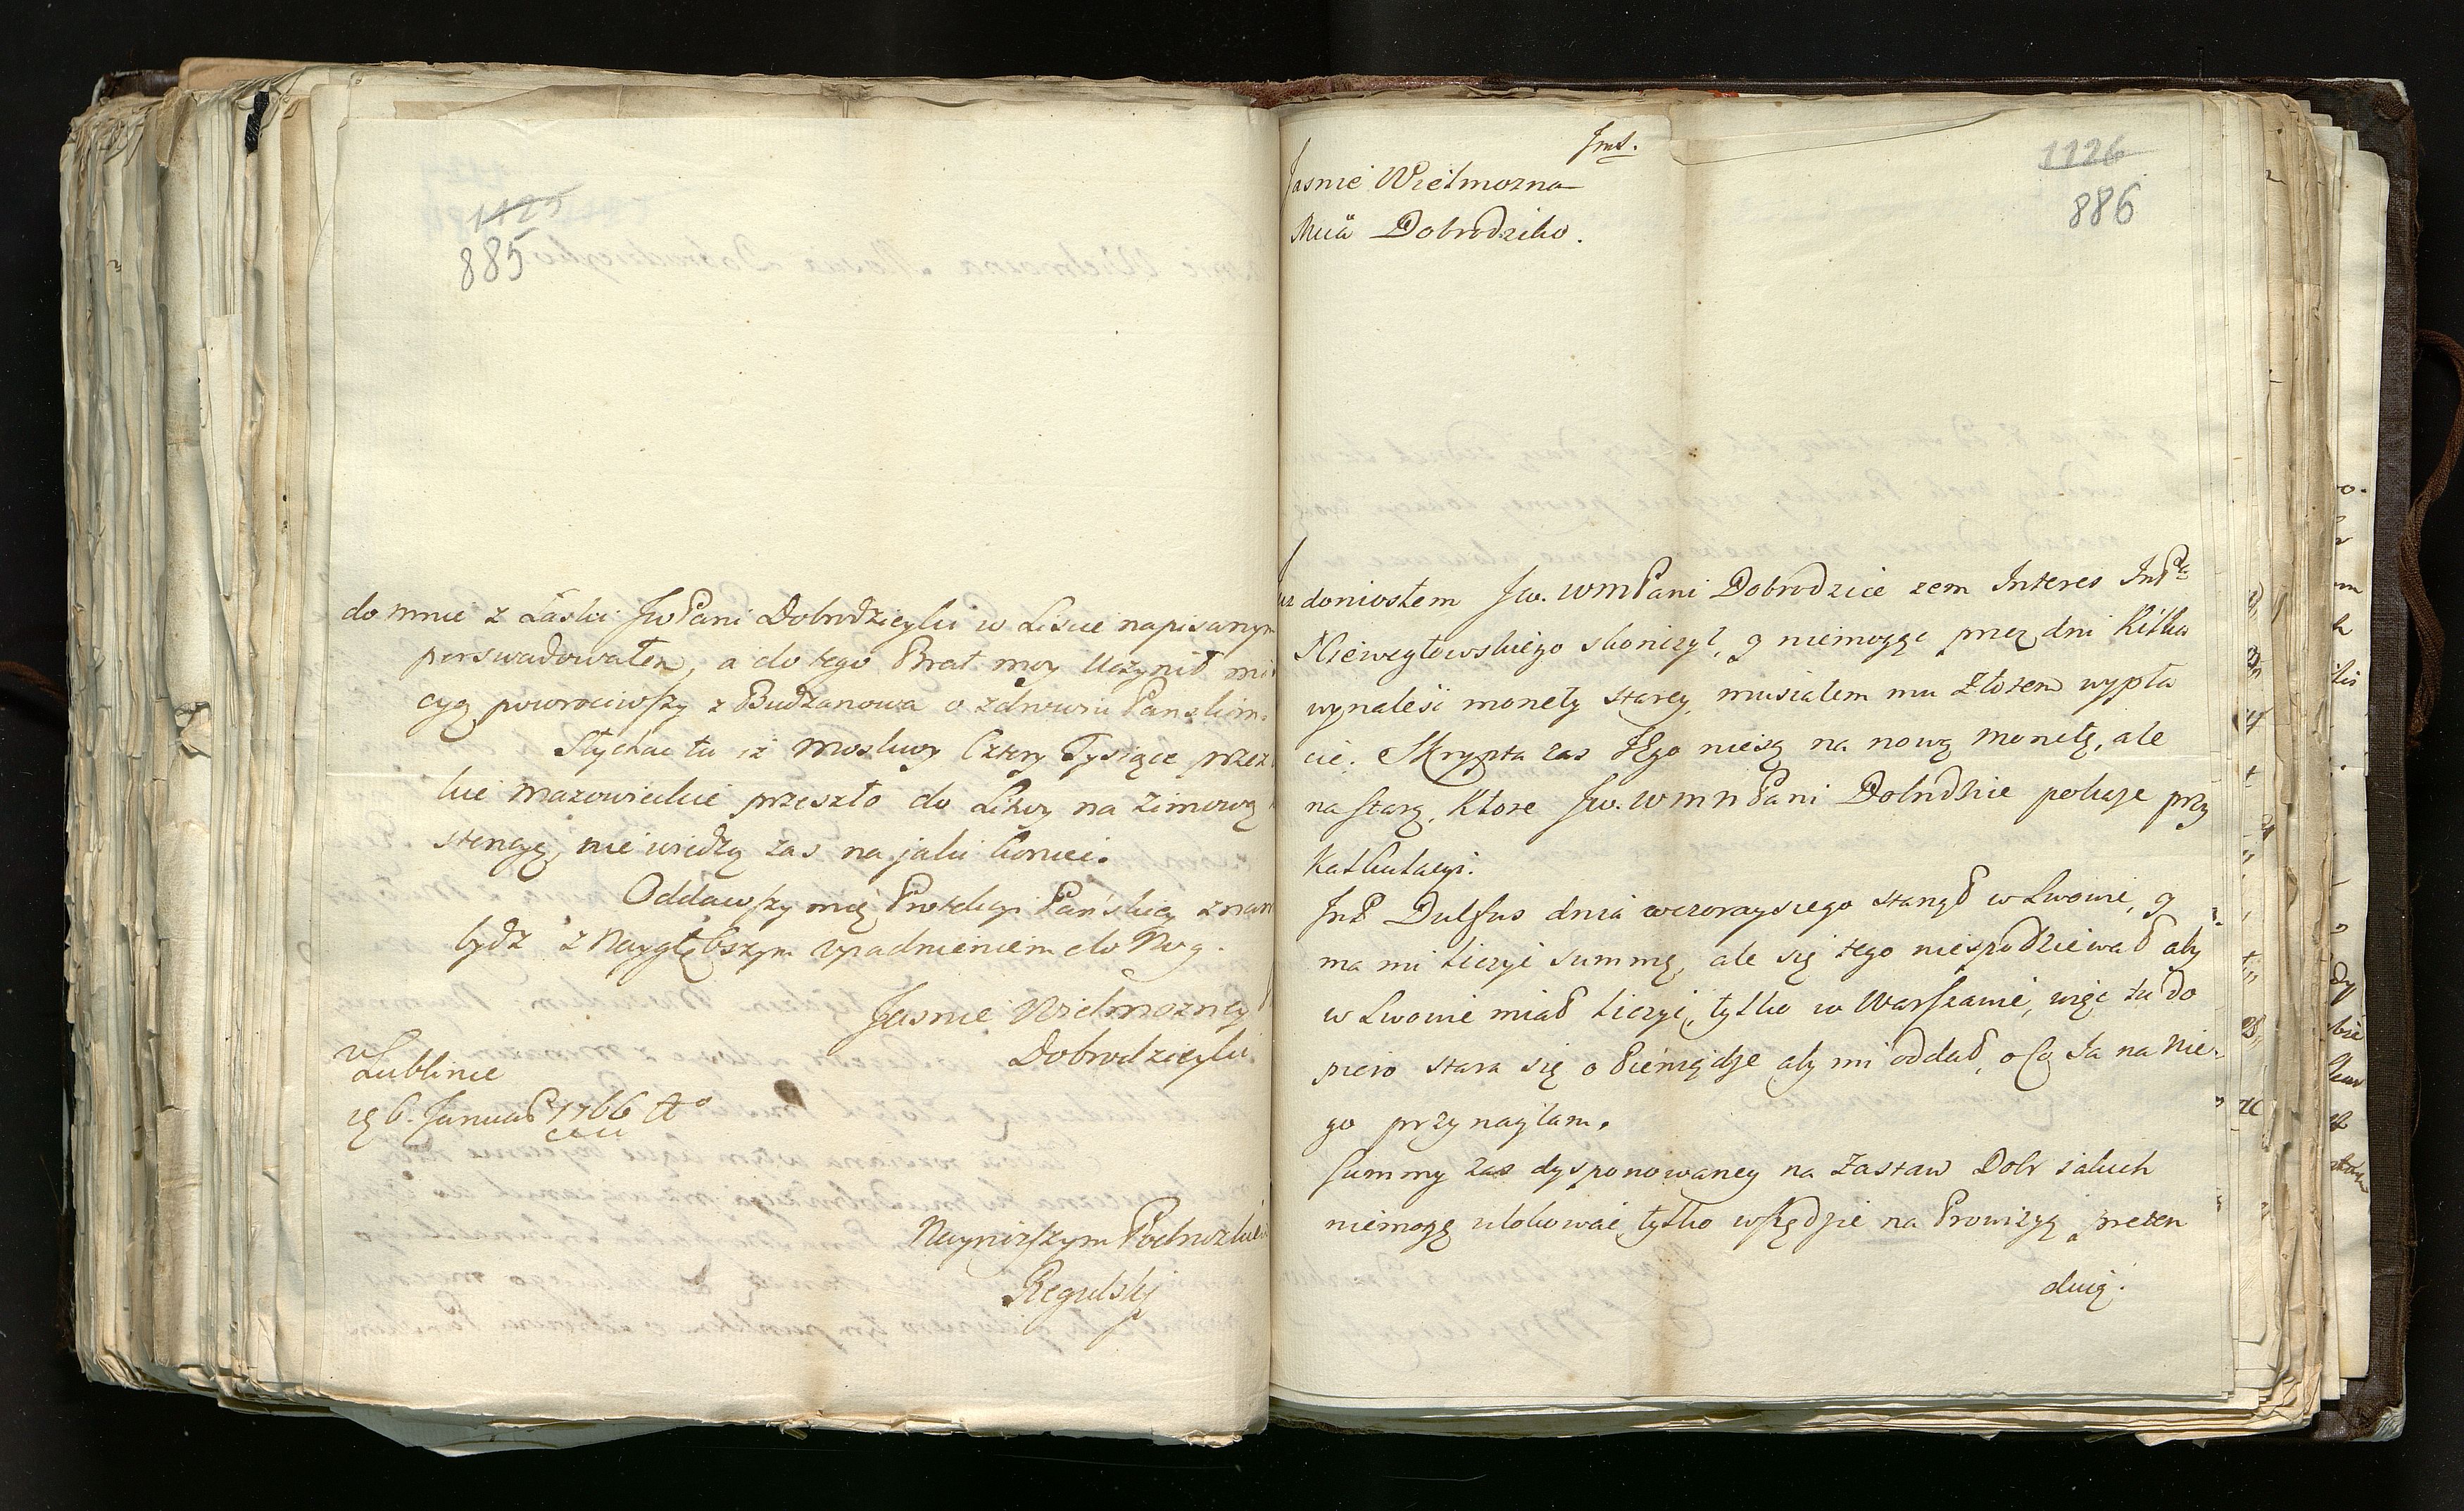 1125
885
do mnie z Łaski JwPani Dobrodzieyki w Liście napisanym
perswadowałem, a do tego Brat moy Uczynił mi
cyą powrociwszy z Budzanowa o zdrowiu Panskim.
Słychac tu iż Moskwy Cztery Tysiące przez
kie mazowieckie przeszło do Litwy na zimową
stencyę, nie wiedzą zas na jaki koniec.
Oddawszy mię Protekcyi Pańskiey znam
bydź z Naygłębszym upadnieniem do Nog.
Jasnie Wielmozney
Dobrodzieyki
w Lublinie
6. Januar 1766 Ao
Nayniższym Podnożkiem
Regulskj
Jmt.
1126
886
Jasnie Wielmozna
Mcia Dobrodziko.
doniosłem Jw. WmPani Dobrodzice zem Interes
Niewegłowskiego skonczył, y niemogąc przez dni Kilka
wynaleść monety starey, musiałem mu Złotem wypła
cić. Skrypta zas Jego niesą na nową Monetę, ale
na starą, Ktore Jw. WmnPani Dobrodzice pokaże przy
Kalkulacyi.
JmP Dulfus dnia wczorayszego stanął w Lwowie, y
ma mi liczyć summę, ale się tego niespodziewał aby
w Lwowie miał liczyć, tylko w Warszawie, więc tu do
piero stara się o Pieniądze aby mi oddał, o Co Ja na Nie-
go przynaglam.
Summy zas dysponowaney na Zastaw Dobr iakich
niemogę ulokować, tylko wszędzie na Prowizyą, preten
duią.